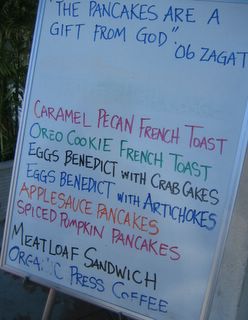 "THE PANCAKES ARE A
GIFT FROM GOD".
'06 ZAGAT
CARAMEL PECAN FRENCH TOAST
OREO COOKIE FRENCH TOAST
EGGS BENEDICT WITH CRAB CAKES
EGGS BENEDICT WITH ARTICHOKES
APPLESAUCE PANCAKES
SPICED PUMPKIN PANCAKES
MEATLOAF SANDWICH
ORGANIC PRESS COFFEE